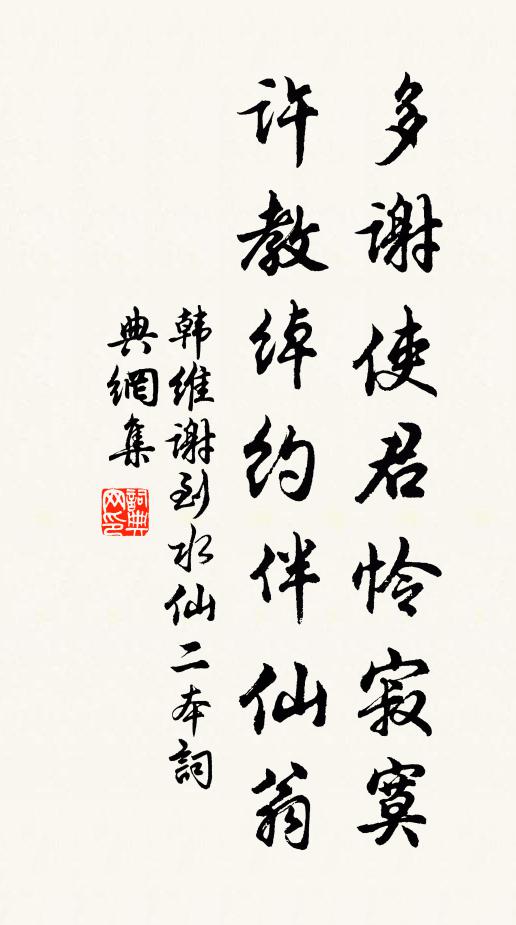 多谢使君怜寂寞
许教绰约伴仙翁
韩维谢到水仙二本詞
典網集
詞典网印